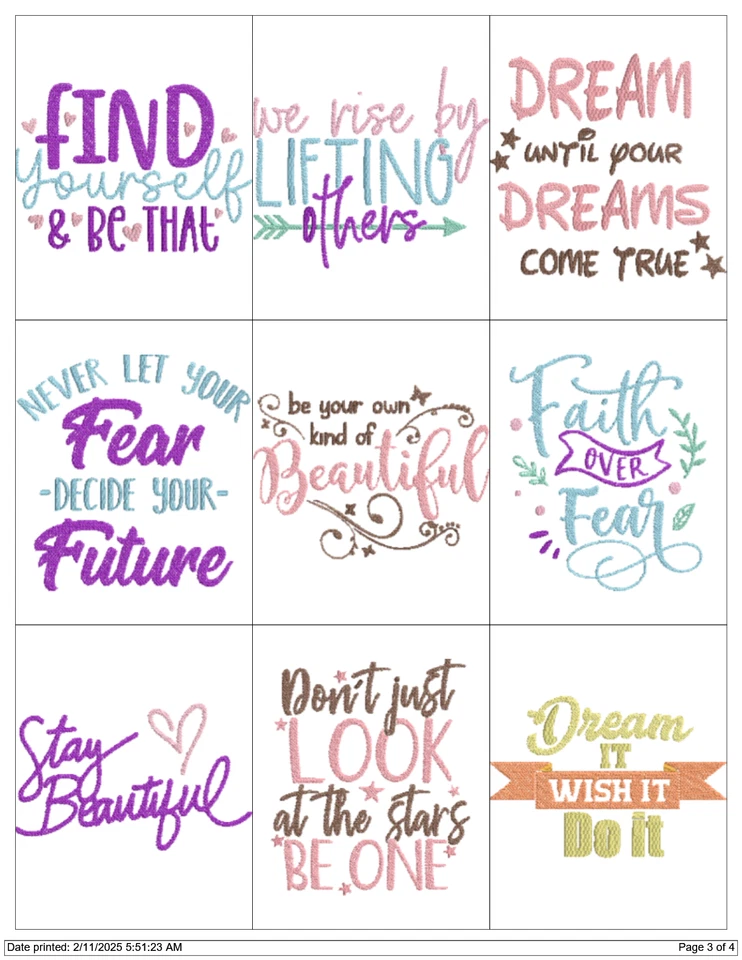 FIND
yourself
& BE THAT
we rise by
LIFTING
others
DREAM
UNTIL YOUR
DREAMS
COME TRUE
NEVER LET YOUR
Fear
-DECIDE YOUR-
Future
be your own
kind of
Beautiful
Faith
OVER
Fear
Stay
Beautiful
Don't just
LOOK
at the stars
BE ONE
Dream
IT
WISH IT
Do it
Date printed: 2/11/2025 5:51:23 AM
Page 3 of 4